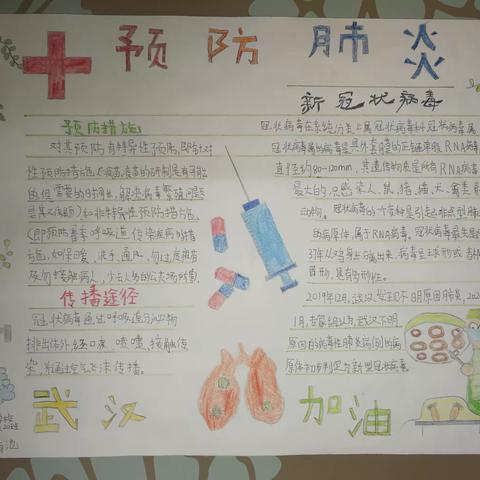 预防肺炎
新冠状病毒
预防措施
对其预防有特异性预防,即针对
性预防措施(疫苗,疫苗的研制是有可能
的,但需要的时间长,解决病毒繁殖问题
和非特异性预防措施,
(即预防春季呼吸道传染疾病的措
施,如保暖、洗手、通风、勿过度疲劳
及勿接触病人,少去人多的公共场所等)
传播途径
冠状病毒通过呼吸道分泌物
排出体外,经口液、喷嚏、接触传
染,并通过空气飞沫传播。
冠状病毒在系统分类上属冠状病毒科冠状病毒属
冠状病毒属的病毒是具外套膜的正链单股RNA病毒
直径约80-120nm,其遗传物质是所有RNA病毒
最大的,只感染人、鼠、猪、猫、犬、禽类
动物。冠状病毒的一个变种是引起非典型肺炎
的病原体,属于RNA病毒。冠状病毒最先是
37年从鸡身上分离出来,病毒呈球形或
圆形,具有多形性。
2019年12月,武汉发生不明原因肺炎,
1月,专家组认为武汉不明
原因的病毒性肺炎病例的病
原体初步判定为新型冠状病毒
武汉
加油